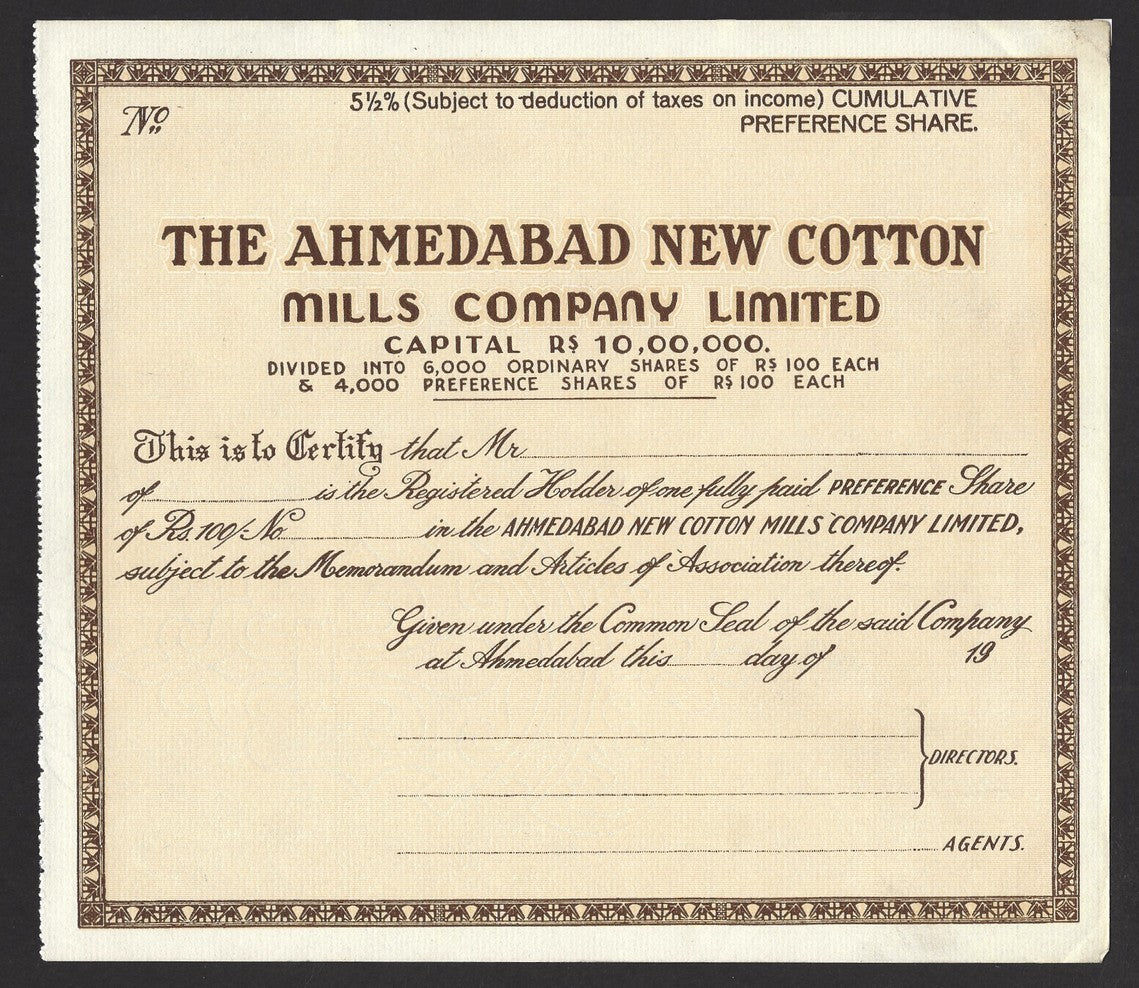 No
5½% (Subject to deduction of taxes on income) CUMULATIVE
PREFERENCE SHARE.
THE AHMEDABAD NEW COTTON
MILLS COMPANY LIMITED
CAPITAL R$ 10,00,000.
DIVIDED INTO 6,000 ORDINARY SHARES OF R$ 100 EACH
& 4,000 PREFERENCE SHARES OF R$ 100 EACH
This is to Certify that Mr
of is the Registered Holder of one fully paid PREFERENCE Share
of Rs. 100/- No. in the AHMEDABAD NEW COTTON MILLS COMPANY LIMITED,
subject to the Memorandum and Articles of Association thereof.
Given under the Common Seal of the said Company
at Ahmedabad this day of 19
DIRECTORS.
AGENTS.